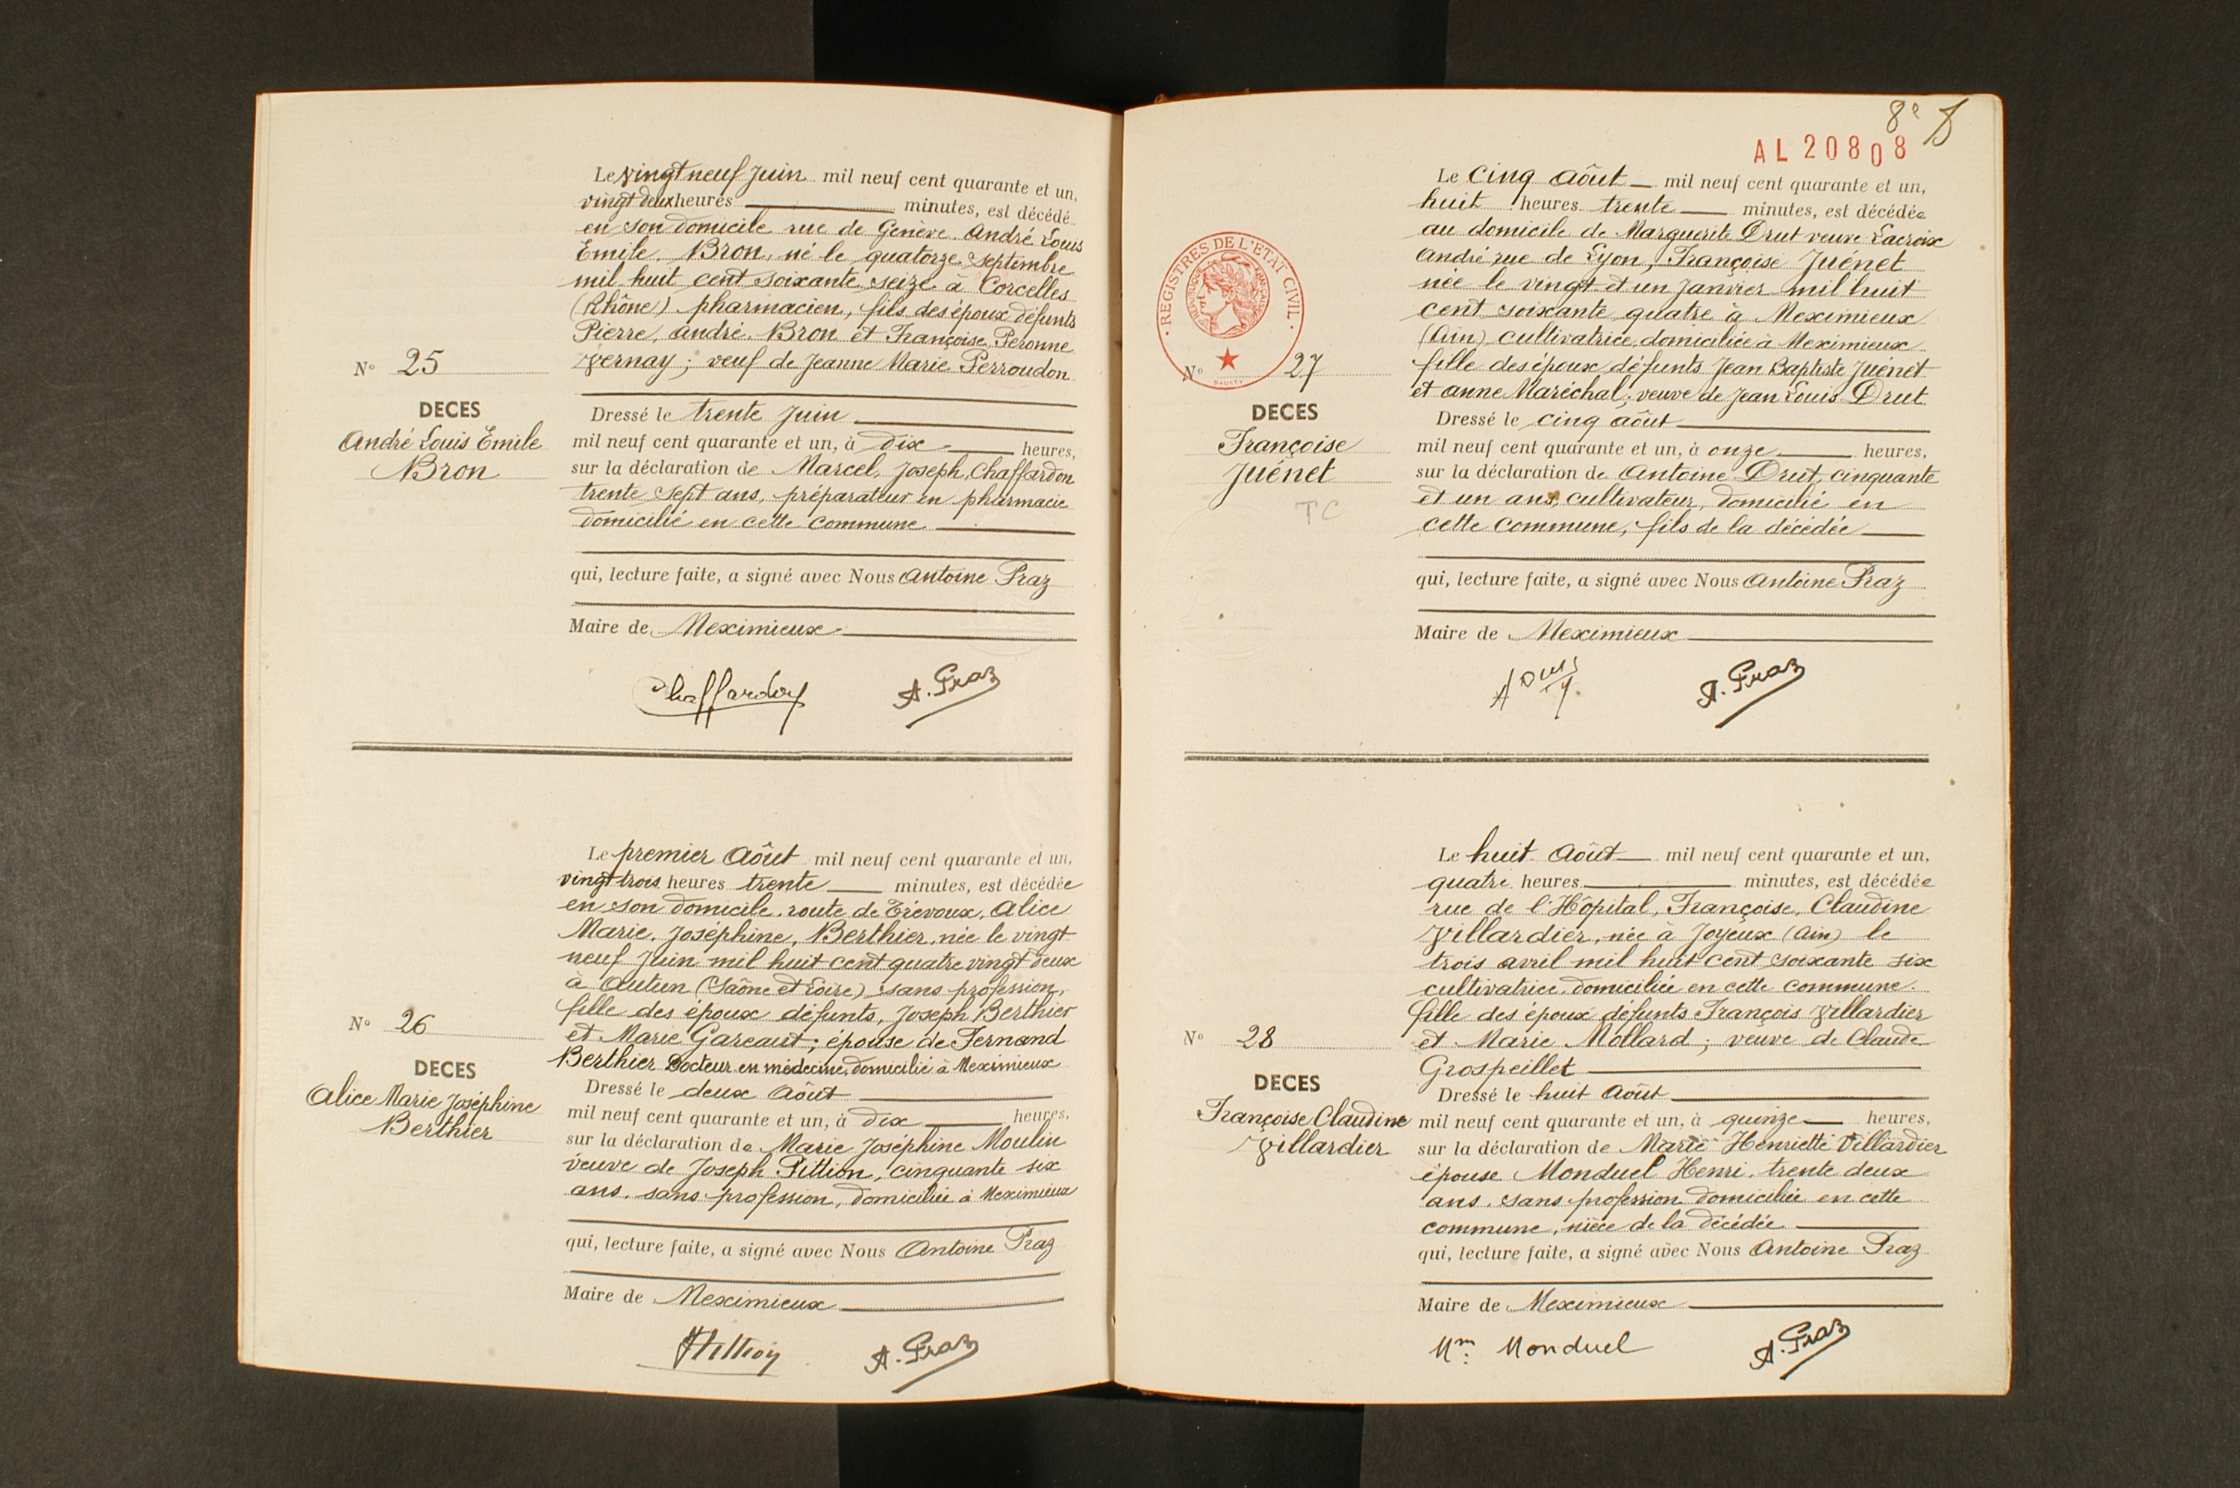 Le vingt neuf Juin mil neuf cent quarante et un,
vingt deux heures minutes, est décédé
en son domicile rue de Genève André Louis
Emile Bron, né le quatorze Septembre
mil huit cent soixante seize à Corcelles
(Rhône) pharmacien, fils des époux défunts
Pierre, André Bron et Françoise, Peronne
N° 25
Vernay; veuf de Jeanne Marie Perroudon
DECES
André Louis Emile
Bron
Dressé le trente Juin
mil neuf cent quarante et un, à dix heures,
sur la déclaration de Marcel, Joseph, Chaffardon
trente sept ans, préparateur en pharmacie
domicilié en cette commune
qui, lecture faite, a signé avec Nous Antoine Praz
Maire de Meximieux
Chaffardon A. Praz
Le premier Aôut mil neuf cent quarante et un,
vingt trois heures trente minutes, est décédée
en son domicile, route de Trévoux, Alice
Marie, Joséphine, Berthier, née le vingt
neuf Juin mil huit cent quatre vingt deux
à Autun (Saône et Loire) sans profession,
fille des époux défunts, Joseph Berthier
N° 26
et Marie Gareaut; épouse de Fernand
Berthier Docteur en médecine, domicilié à Meximieux
DECES
Alice Marie Joséphine
Berthier
Dressé le deux Aôut
mil neuf cent quarante et un, à dix heures,
sur la déclaration de Marie Joséphine Moulin
veuve de Joseph Pittion, cinquante six
ans, sans profession, domiciliée à Meximieux
qui, lecture faite, a signé avec Nous Antoine Praz
Maire de Meximieux
Pittion A. Praz
8e
AL 20808
REGISTRES DE L'ETAT CIVIL
Le Cinq Aôut mil neuf cent quarante et un,
huit heures trente minutes, est décédée
au domicile de Marguerite Drut veuve Lacroix
André rue de Lyon, Françoise Juénet
née le vingt et un Janvier mil huit
cent soixante quatre à Meximieux
(Ain) cultivatrice, domiciliée à Meximieux
N° 27
fille des époux défunts Jean Baptiste Juénet
et Anne Maréchal; veuve de Jean Louis Drut
DECES
Françoise
Juénet
TC
Dressé le cinq aôut
mil neuf cent quarante et un, à onze heures,
sur la déclaration de Antoine Drut, cinquante
et un ans, cultivateur, domicilié en
cette commune, fils de la décédée
qui, lecture faite, a signé avec Nous Antoine Praz
Maire de Meximieux
A. Praz
Le huit Aôut mil neuf cent quarante et un,
quatre heures minutes, est décédée
rue de l'Hôpital, Françoise, Claudine
Villardier, née à Joyeux (Ain) le
trois avril mil huit cent soixante six
cultivatrice, domiciliée en cette commune.
fille des époux défunts François Villardier
N° 28
et Marie Mollard; veuve de Claude
Grospeillet
DECES
Françoise Claudine
Villardier
Dressé le huit Aôut
mil neuf cent quarante et un, à quinze heures,
sur la déclaration de Marie Henriette Villardier
épouse Monduel Henri, trente deux
ans, sans profession domiciliée en cette
commune, nièce de la décédée
qui, lecture faite, a signé avec Nous Antoine Praz
Maire de Meximieux
Mm: Monduel A. Praz